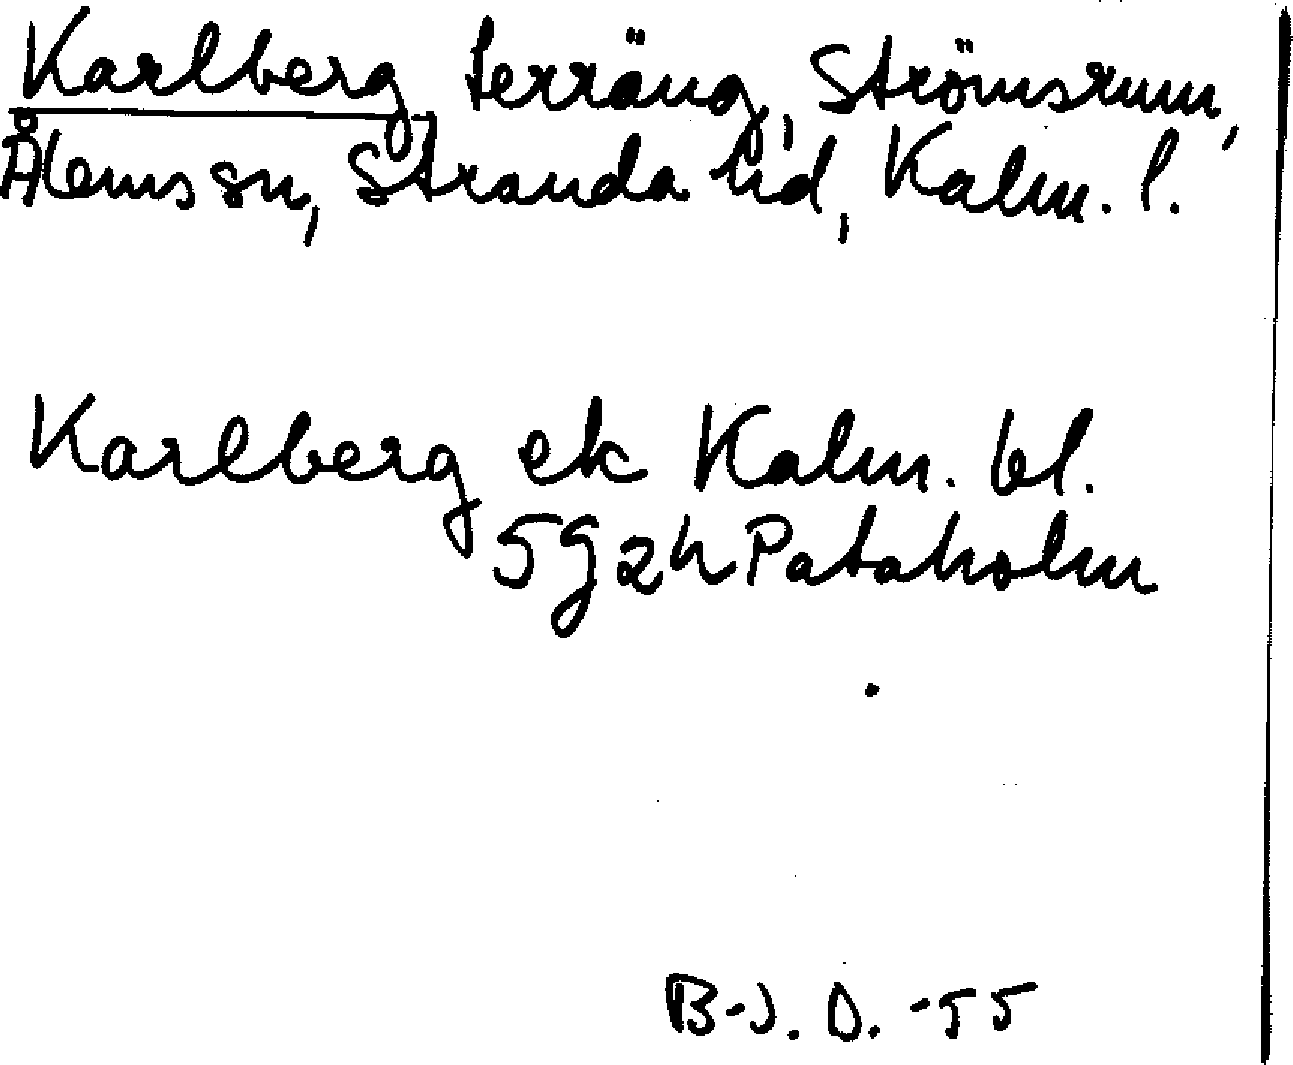 Karlberg, terräng, Strömsrum,
Ålems sn, Stranda hd, Kalm. l.
Karlberg ek Kalm. bl.
5g2h Pataholm
B-J. D. -55